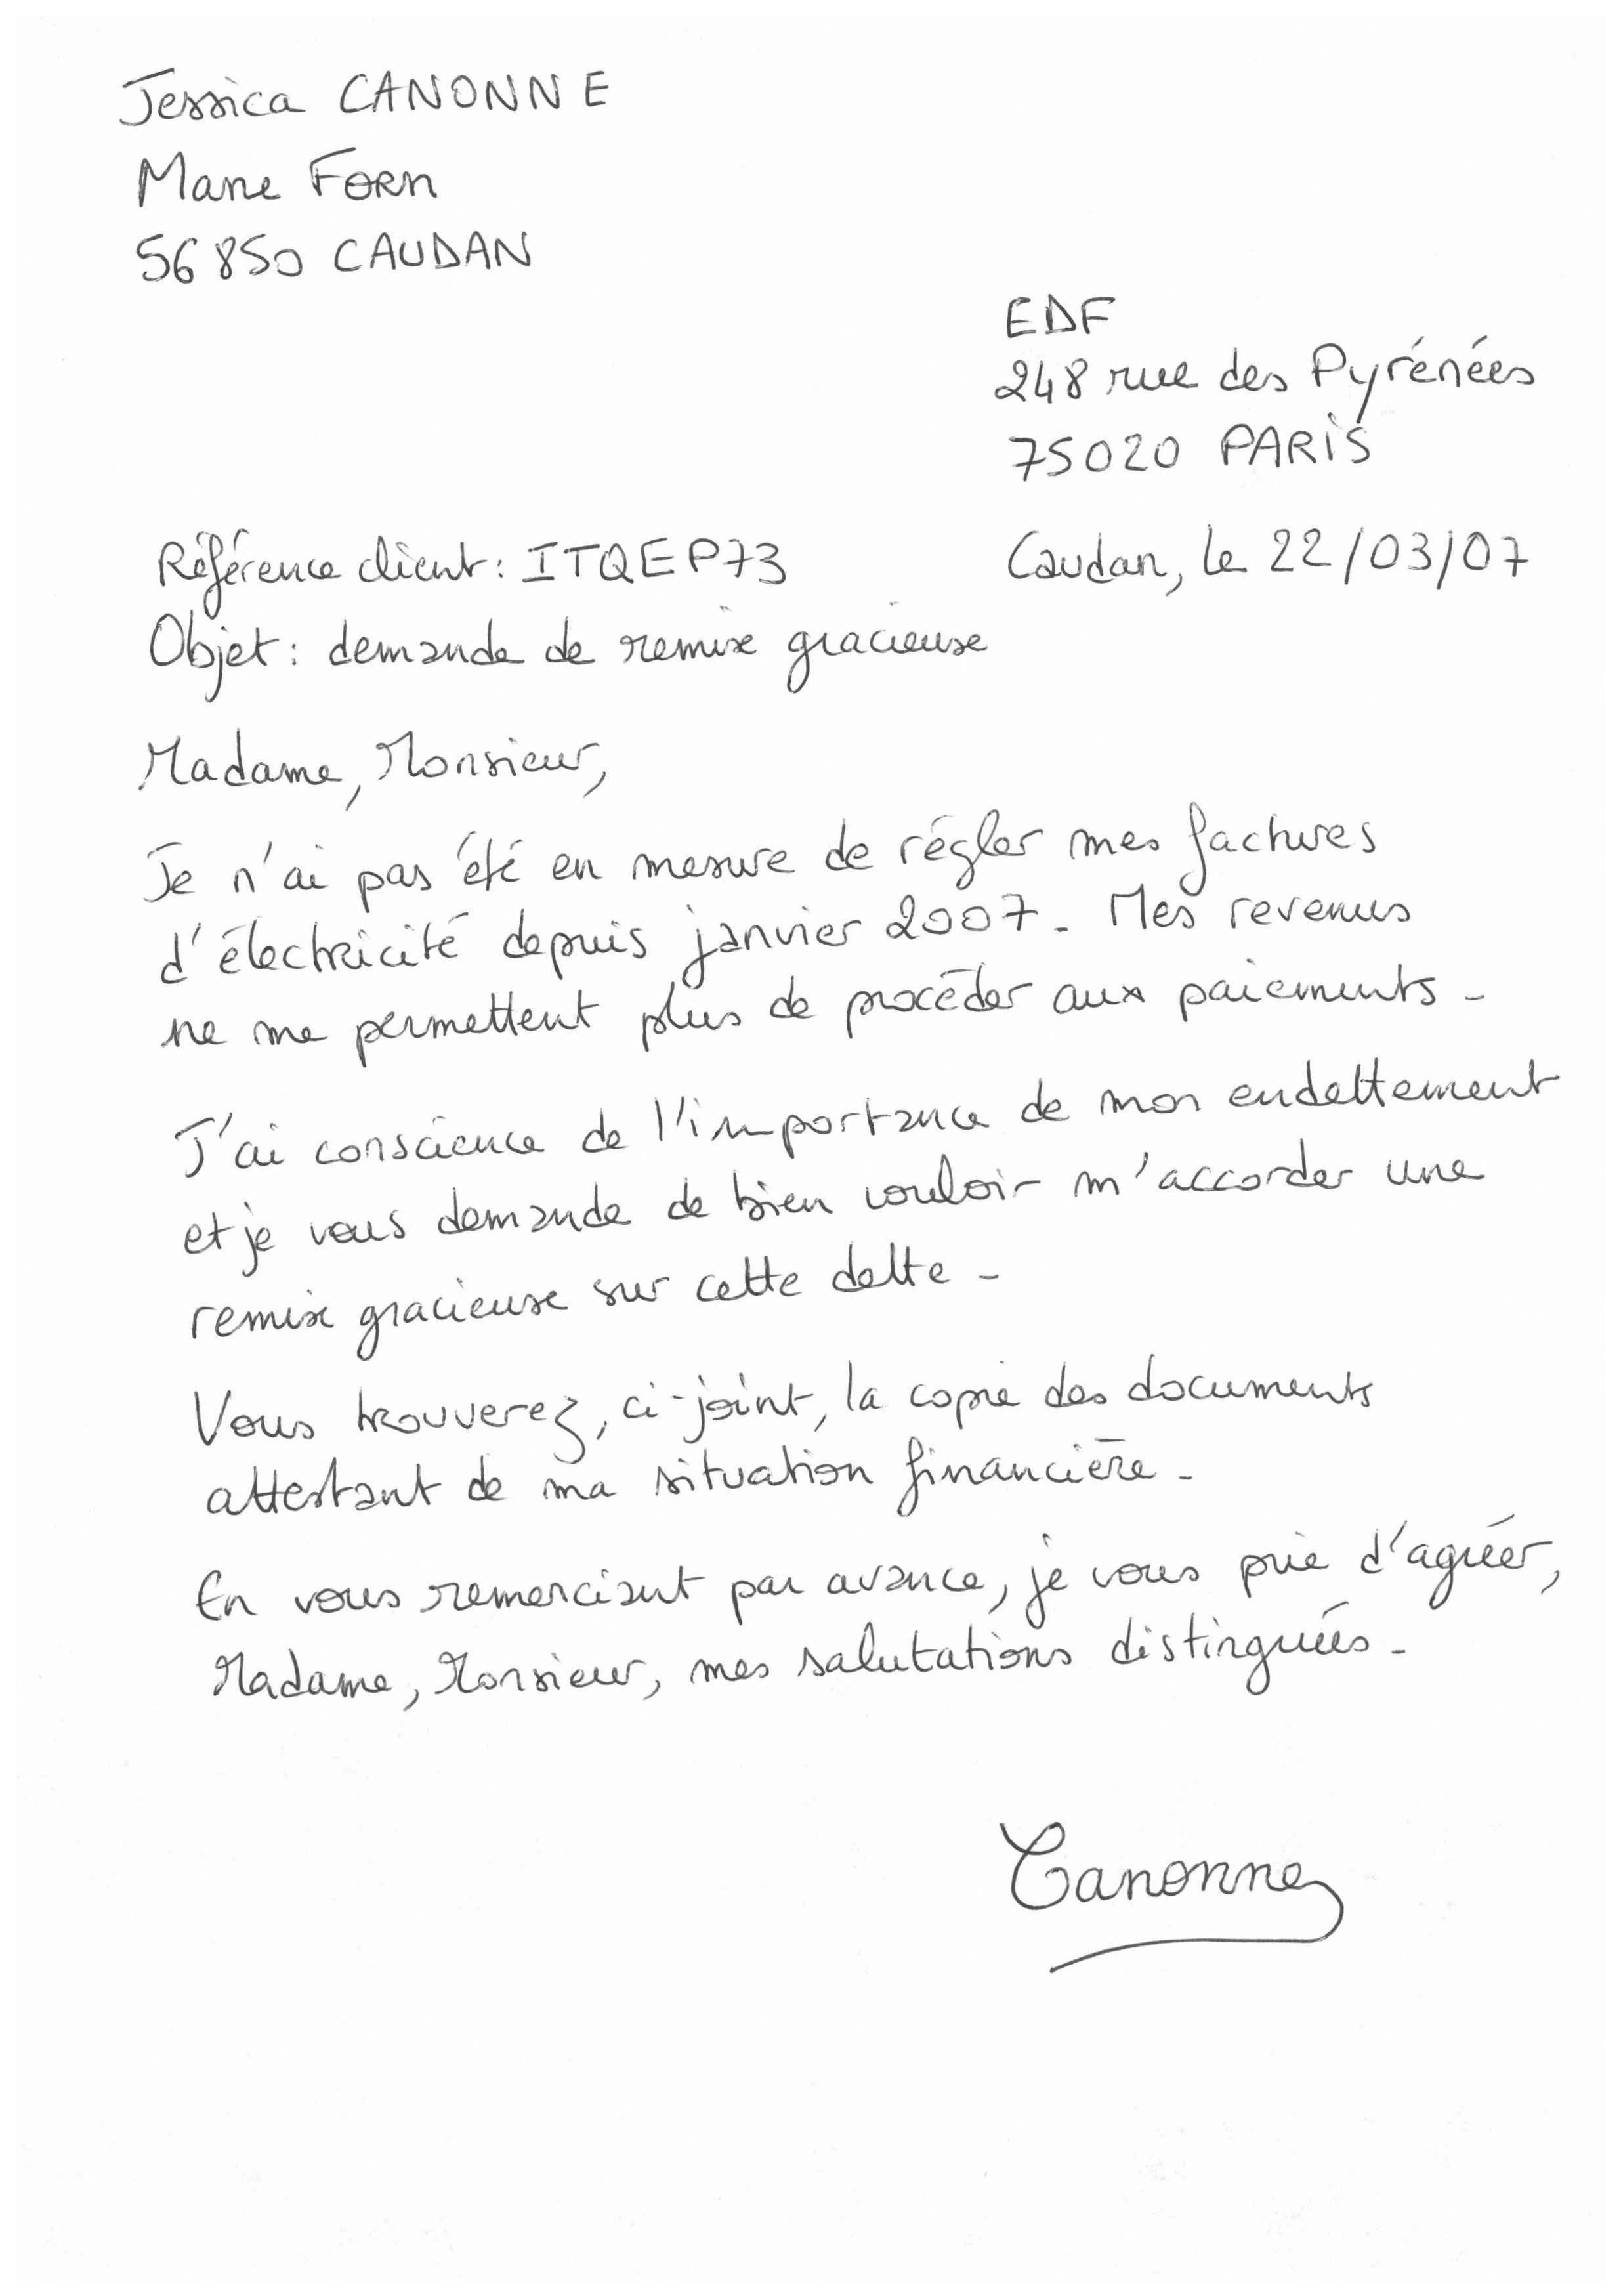 Jessica CANONNE
Mane Forn
56850 CAUDAN
EDF
248 rue des Pyrénées
75020 PARIS
Référence client : ITQEP73
Caudan, le 22/03/07
Objet : demande de remise gracieuse
Madame, Monsieur,
Je n'ai pas été en mesure de régler mes factures
d'électricité depuis janvier 2007. Mes revenus
ne me permettent plus de procéder aux paiements.
J'ai conscience de l'importance de mon endettement
et je vous demande de bien vouloir m'accorder une
remise gracieuse sur cette dette.
Vous trouverez, ci-joint, la copie des documents
attestant de ma situation financière.
En vous remerciant par avance, je vous prie d'agréer,
Madame, Monsieur, mes salutations distinguées.
Canonne